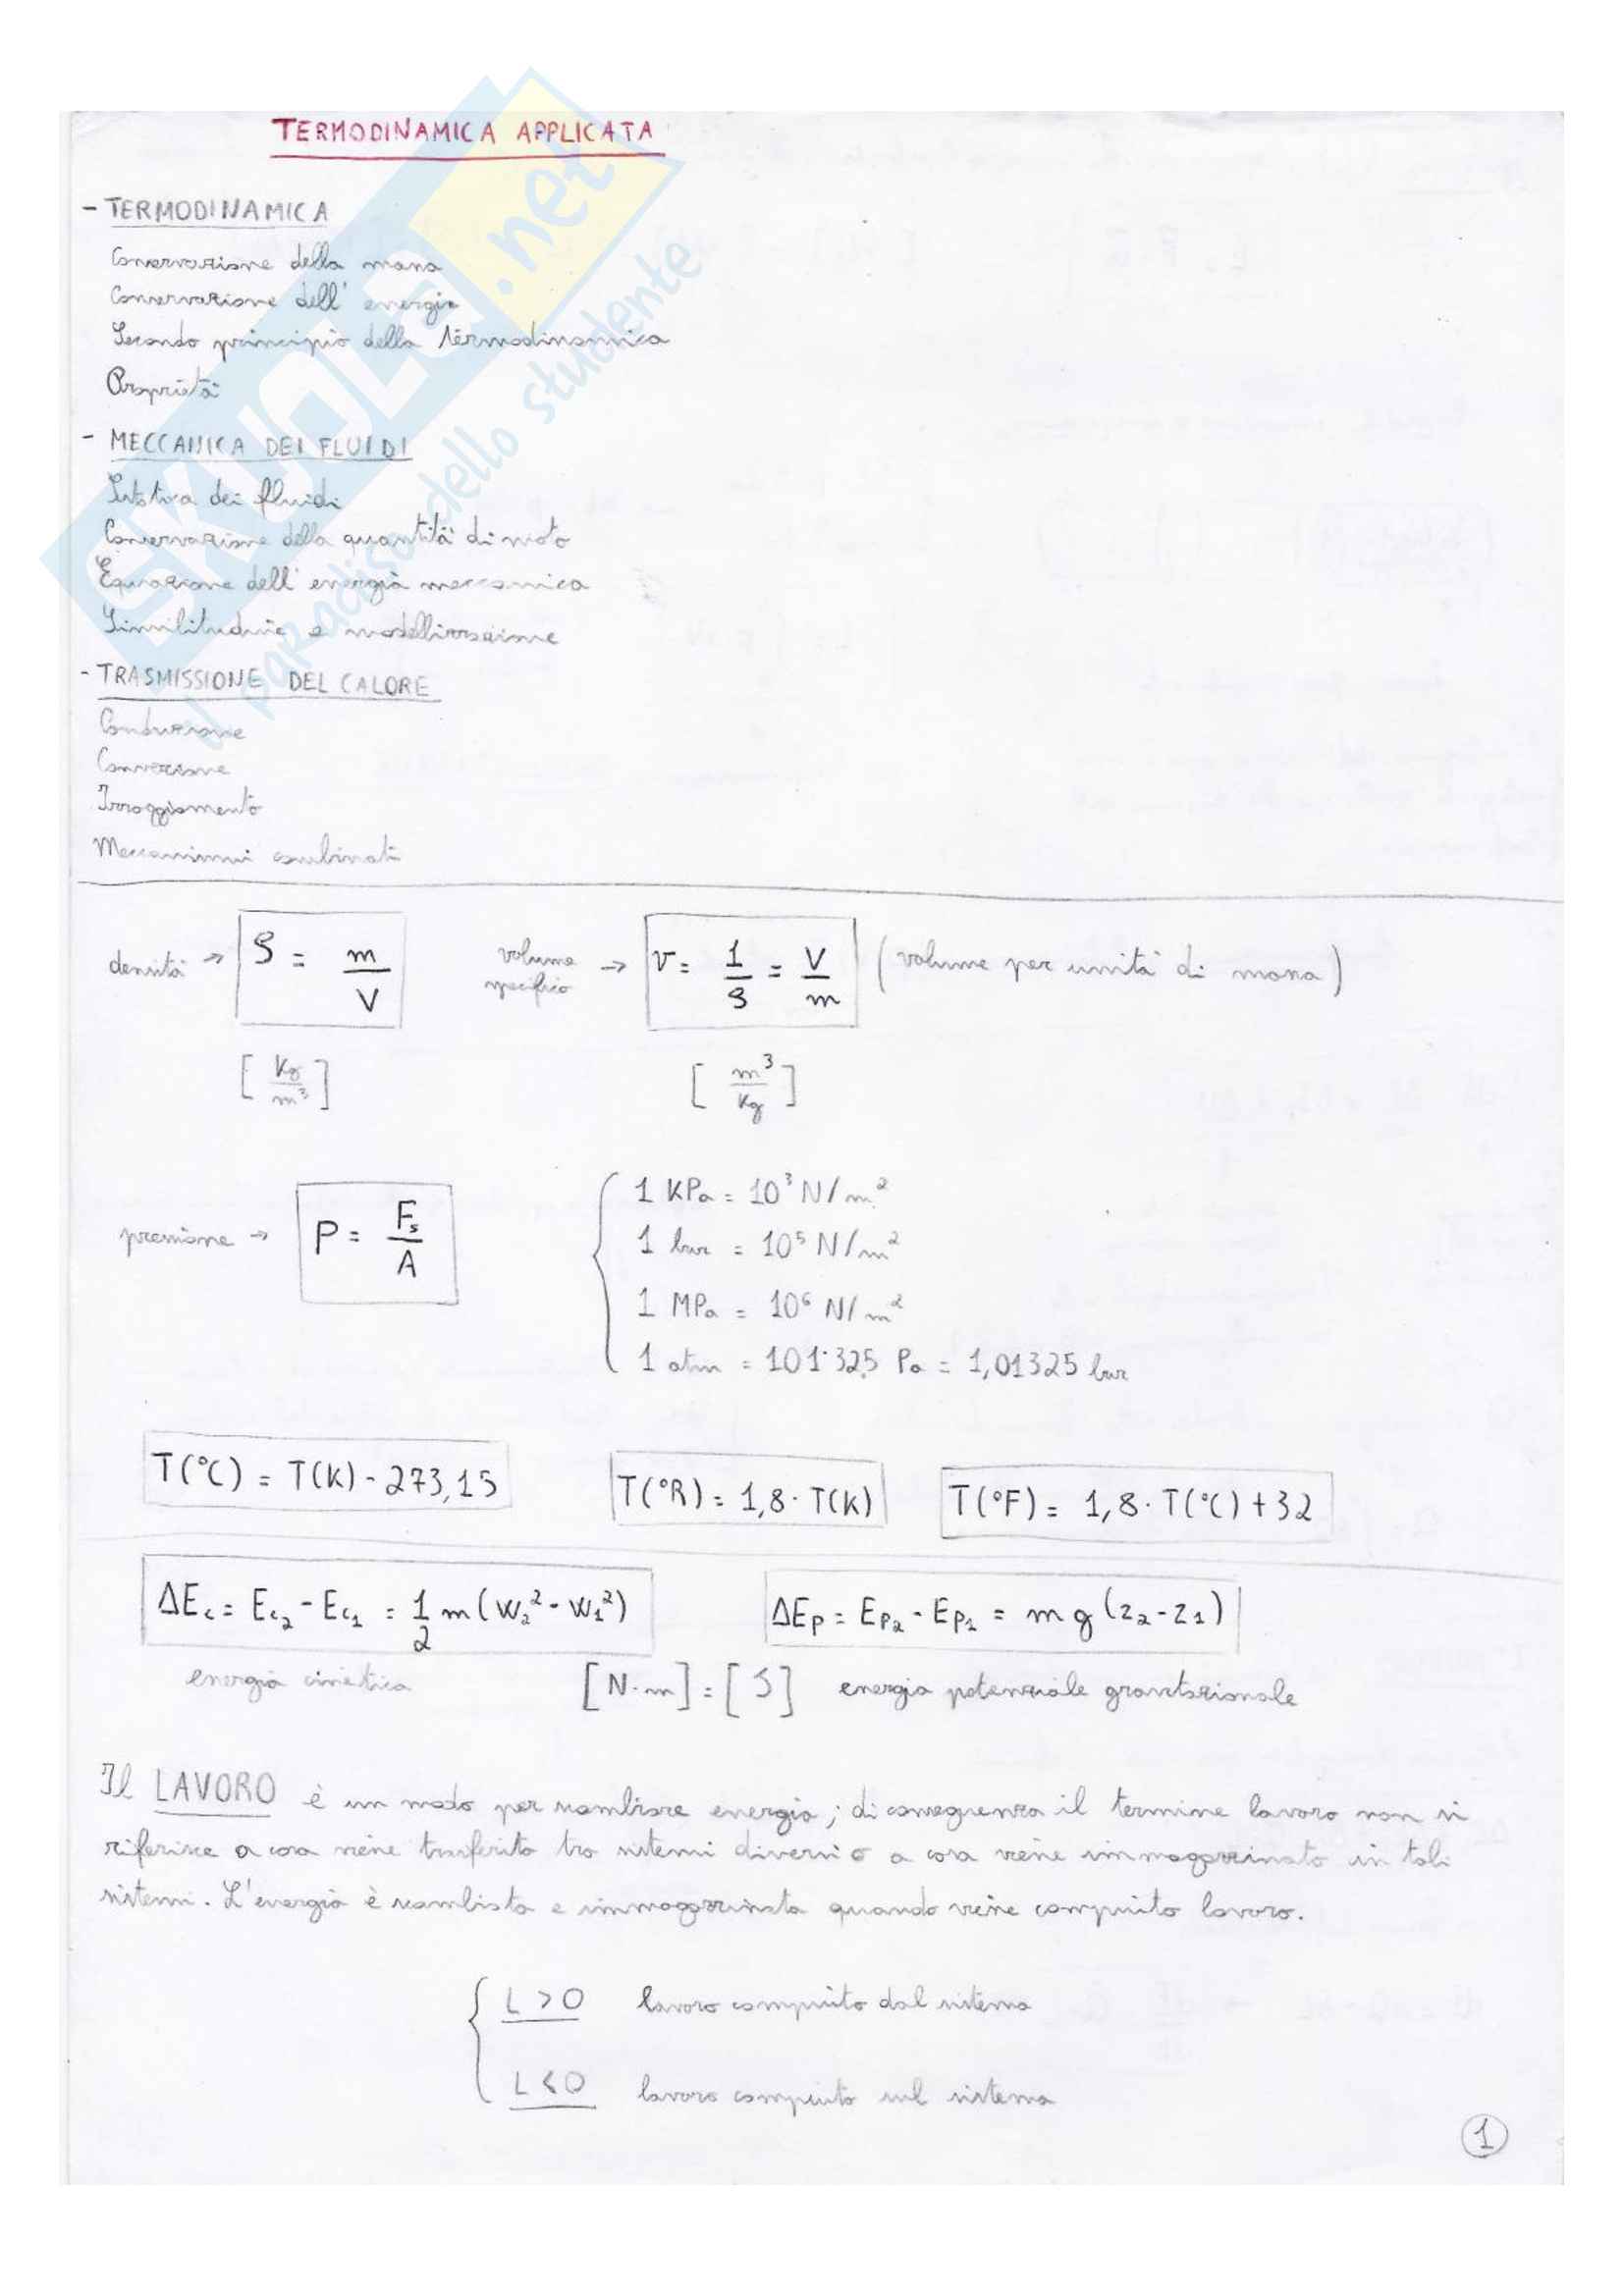 TERMODINAMICA APPLICATA
- TERMODINAMICA
Conservazione della massa
Conservazione dell'energia
Secondo principio della termodinamica
Proprietà
- MECCANICA DEI FLUIDI
Statica dei fluidi
Conservazione della quantità di moto
Equazione dell'energia meccanica
Similitudine e modellizzazione
- TRASMISSIONE DEL CALORE
Conduzione
Convezione
Irraggiamento
Meccanismi combinati
densità → ρ = m/V volume specifico → v = 1/ρ = V/m (volume per unità di massa)
[Kg/m³] [m³/Kg]
pressione → P = Fs/A
1 KPa = 10³ N/m²
1 bar = 10⁵ N/m²
1 MPa = 10⁶ N/m²
1 atm = 101'325 Pa = 1,01325 bar
T(°C) = T(K) - 273,15 T(°R) = 1,8 · T(K) T(°F) = 1,8 · T(°C) + 32
ΔEc = Ec₂ - Ec₁ = 1/2 m (w₂² - w₁²) ΔEp = Ep₂ - Ep₁ = m g (z₂ - z₁)
energia cinetica [N·m] = [J] energia potenziale gravitazionale
Il LAVORO è un modo per scambiare energia; di conseguenza il termine lavoro non si
riferisce a cosa viene trasferito tra sistemi diversi o a cosa viene immagazzinato in tali
sistemi. L'energia è scambiata e immagazzinata quando viene compiuto lavoro.
L > 0 lavoro compiuto dal sistema
L < 0 lavoro compiuto sul sistema
1
SKUOLA.net
il paradiso dello studente